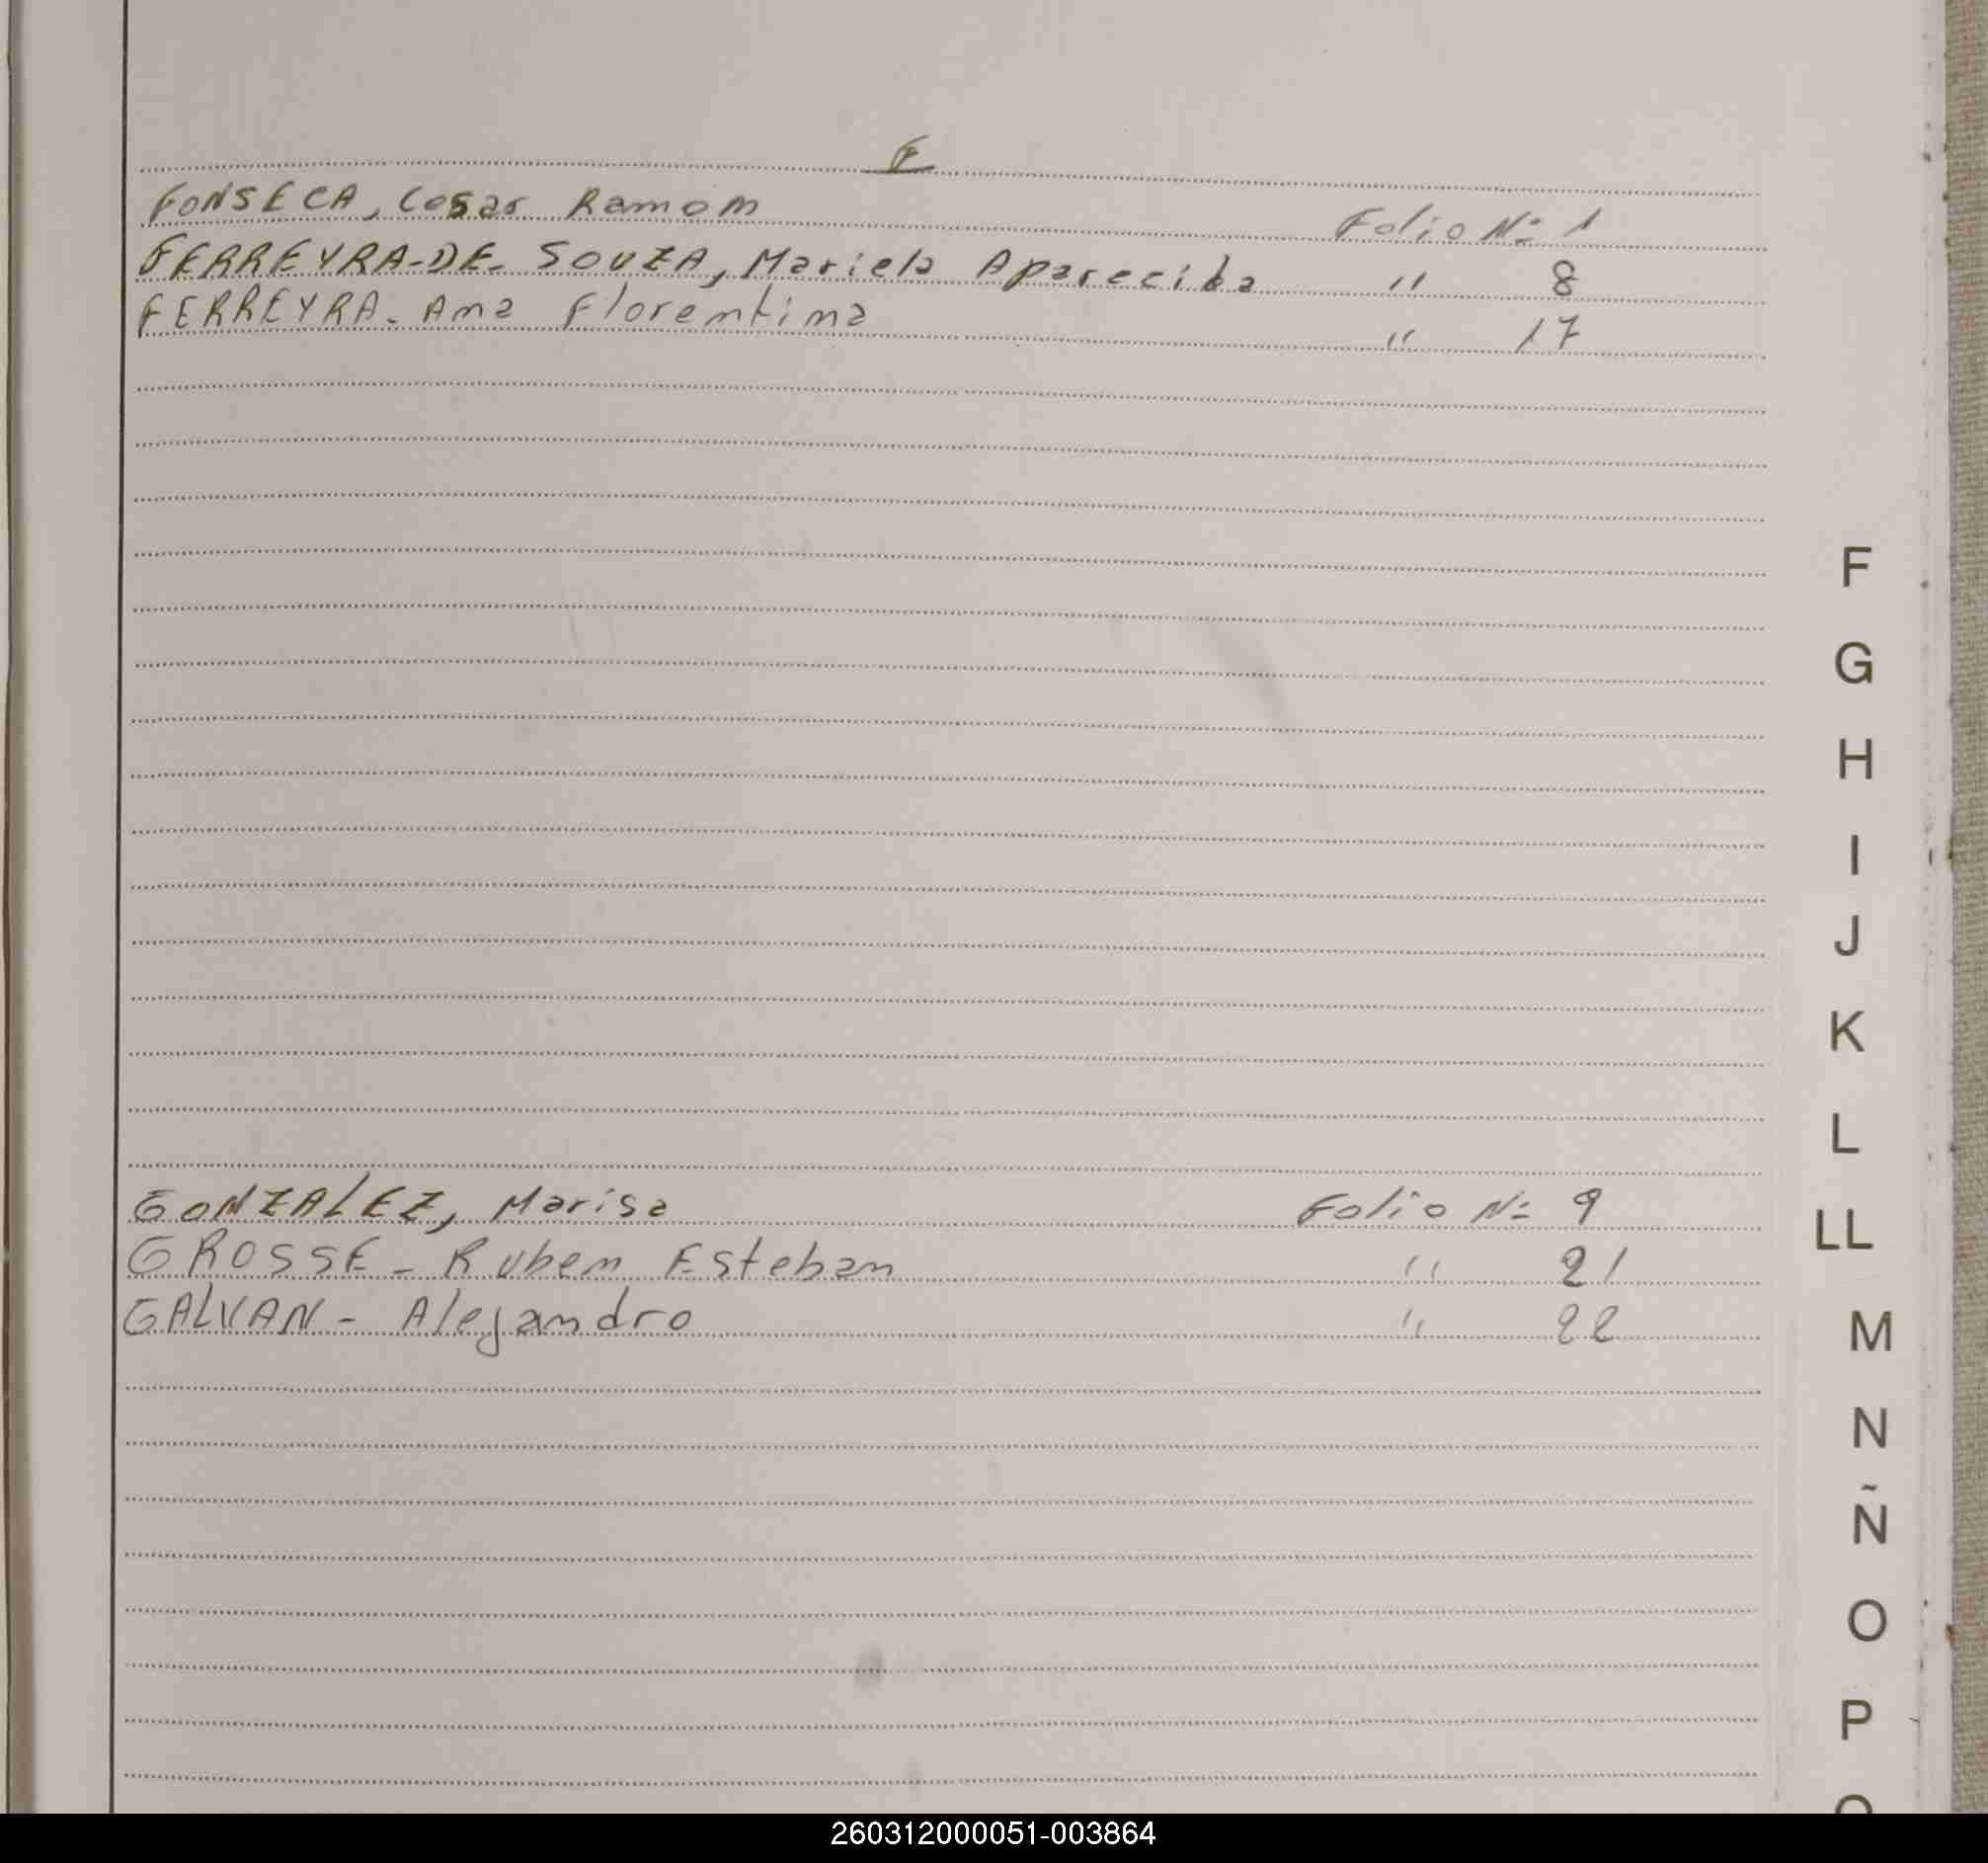 F
FONSECA, Cesar Ramon Folio Nº 1
FERREYRA-DE SOUZA, Mariela Aparecida " 8
FERREYRA- Ana Florentina " 17
GONZALEZ, Marisa Folio Nº 9
GROSSE - Ruben Esteban " 21
GALVAN - Alejandro " 22
F
G
H
I
J
K
L
LL
M
N
Ñ
O
P
260312000051-003864